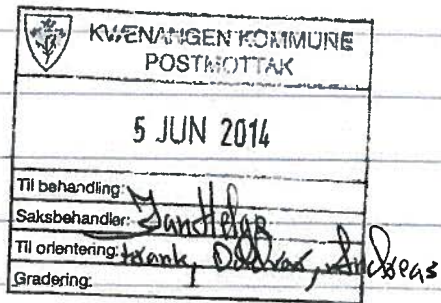 KVÆNANGEN KOMMUNE
POSTMOTTAK
5 JUN 2014
Til behandling:
Saksbehandler: Jan Helge
Til orientering: Frank, Oddvar, Andreas
Gradering: